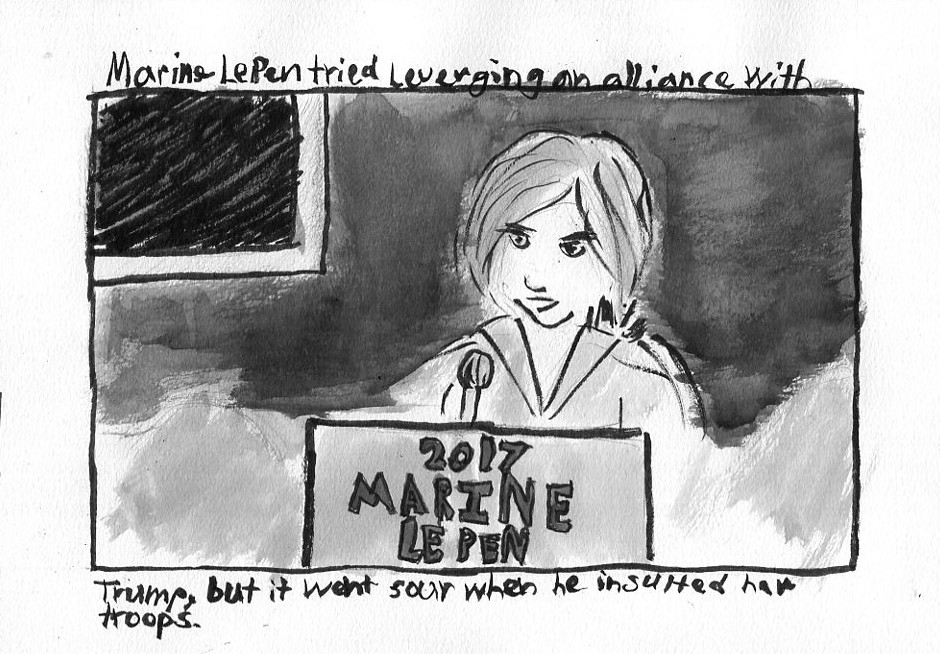 Marine LePen tried leverging an alliance with
2017
MARINE
LE PEN
Trump, but it went sour when he insulted her
troops.